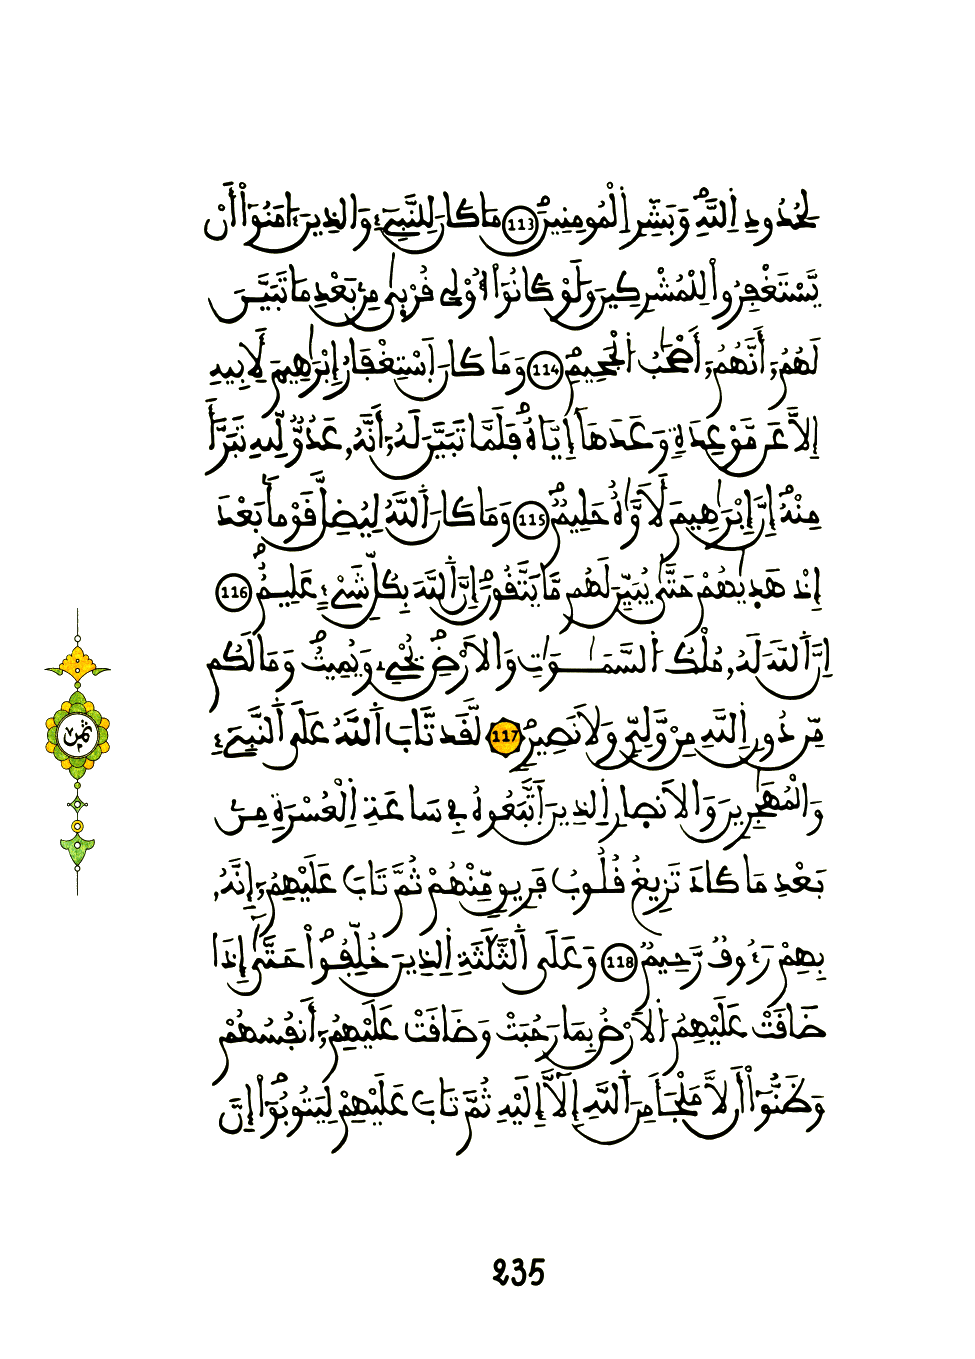 لِحُدُودِ اِ۬للَّهِۖ وَبَشِّرِ اِ۬لْمُومِنِينَۖ 113 مَا كَانَ لِلنَّبِےٓءِ وَالذِينَ ءَامَنُوٓاْ أَنْ
يَّسْتَغْفِرُواْ لِلْمُشْرِكِينَ وَلَوْ كَانُوٓاْ أُوْلِے قُرْبٜيٰ مِنۢ بَعْدِ مَا تَبَيَّنَ
لَهُمُۥٓ أَنَّهُمُۥٓ أَصْحَٰبُ اُ۬لْجَحِيمِۖ 114 وَمَا كَانَ اَ۪سْتِغْفَارُ إِبْرَٰهِيمَ لِأَبِيهِ
إِلَّا عَن مَّوْعِدَةٖ وَعَدَهَآ إِيَّاهُۖ فَلَمَّا تَبَيَّنَ لَهُۥٓ أَنَّهُۥ عَدُوّٞ لِّلهِ تَبَرَّأَ
مِنْهُۖ إِنَّ إِبْرَٰهِيمَ لَأَوَّٰهٌ حَلِيمٞۖ 115 وَمَا كَانَ اَ۬للَّهُ لِيُضِلَّ قَوْماَۢ بَعْدَ
إِذْ هَدٜيٰهُمْ حَتَّىٰ يُبَيِّنَ لَهُم مَّا يَتَّقُونَۖ إِنَّ اَ۬للَّهَ بِكُلِّ شَےْءٍ عَلِيمٌۖ 116
اِنَّ اَ۬للَّهَ لَهُۥ مُلْكُ اُ۬لسَّمَٰوَٰتِ وَالَارْضِۖ يُحْيِۦ وَيُمِيتُۖ وَمَا لَكُم
مِّن دُونِ اِ۬للَّهِ مِنْ وَّلِيّٖ وَلَا نَصِيرٖۖ 117 لَّقَد تَّابَ اَ۬للَّهُ عَلَى اَ۬لنَّبِےٓءِ
وَالْمُهَٰجِرِينَ وَالَانصٜارِ اِ۬لذِينَ اَ۪تَّبَعُوهُ فِے سَاعَةِ اِ۬لْعُسْرَةِ مِنۢ
بَعْدِ مَا كَادَ تَزِيغُ قُلُوبُ فَرِيقٖ مِّنْهُمْ ثُمَّ تَابَ عَلَيْهِمُۥٓ إِنَّهُۥ
بِهِمْ رَءُوفٞ رَّحِيمٞۖ 118 وَعَلَى اَ۬لثَّلَٰثَةِ اِ۬لذِينَ خُلِّفُواْۖ حَتَّىٰٓ إِذَا
ضَاقَتْ عَلَيْهِمُ اُ۬لَارْضُ بِمَا رَحُبَتْ وَضَاقَتْ عَلَيْهِمُۥٓ أَنفُسُهُمْ
وَظَنُّوٓاْ أَن لَّا مَلْجَأَ مِنَ اَ۬للَّهِ إِلَّآ إِلَيْهِ ثُمَّ تَابَ عَلَيْهِمْ لِيَتُوبُوٓاْۖ إِنَّ
ثمن
235